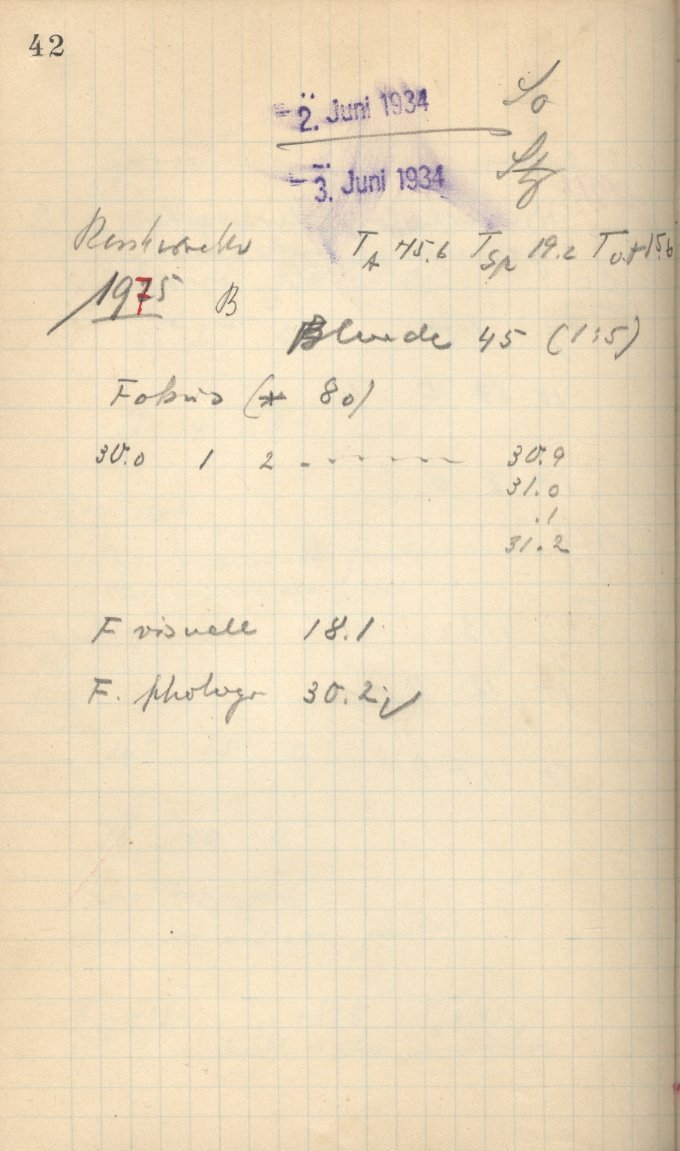 42
- 2. Juni 1934 So
- 3. Juni 1934 Stg
T_A 45.6 T_Sp 19.2 T_v.F 15.6
1975 B
Blende 45 (1:5)
Fokus (* 80)
30.0 1 2 - - - - - - 30.9
31.0
.1
31.2
F visuell 18.1
F. photogr 30.2